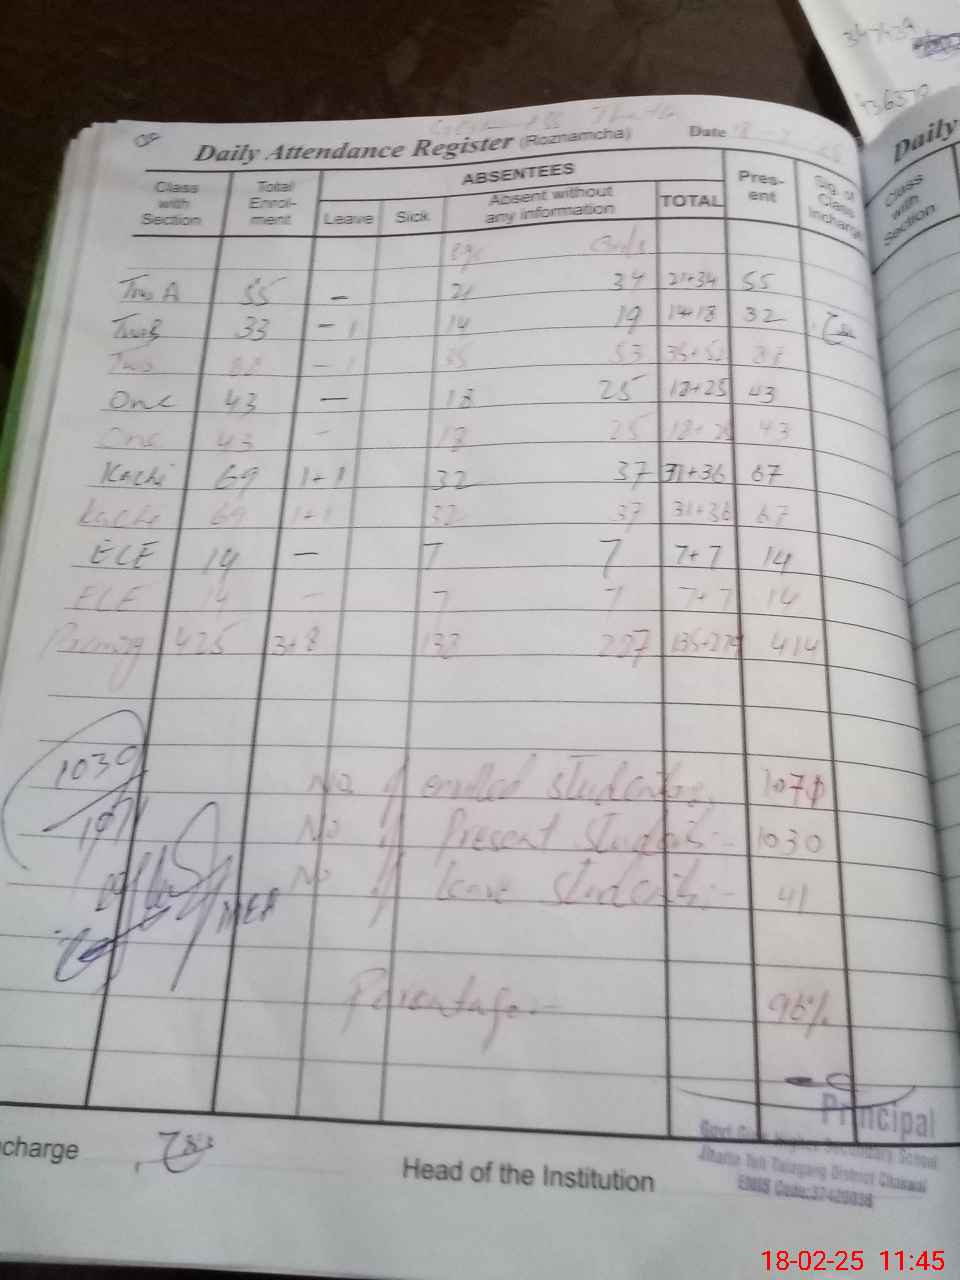 Daily Attendance Register (Roznamcha) Date
Class with Section Total Enrol- ment ABSENTEES Pres- ent Sig. of Class Incharge
Leave Sick Absent without any information TOTAL
Two A 55 - 21 34 21+34 55
Two B 33 - 1 14 19 14+18 32
Two 88 - 1 35 53 35+52 87
One 43 - 18 25 18+25 43
One 43 - 18 25 18+25 43
Kachi 69 1+1 32 37 31+36 67
Kachi 69 1+1 32 37 31+36 67
ECE 14 - 7 7 7+7 14
ECE 14 - 7 7 7+7 14
425 3+8 138 287 135+279 414
1030
No of enrolled students. 1071
No of Present students:- 1030
No of leave students:- 41
MEA
Percentage:- 96%
Principal
Govt Girls Higher Secondary School
Teh Talagang District Chakwal
EMIS Code:37420038
charge
Head of the Institution
Daily
Class with Section
18-02-25 11:45